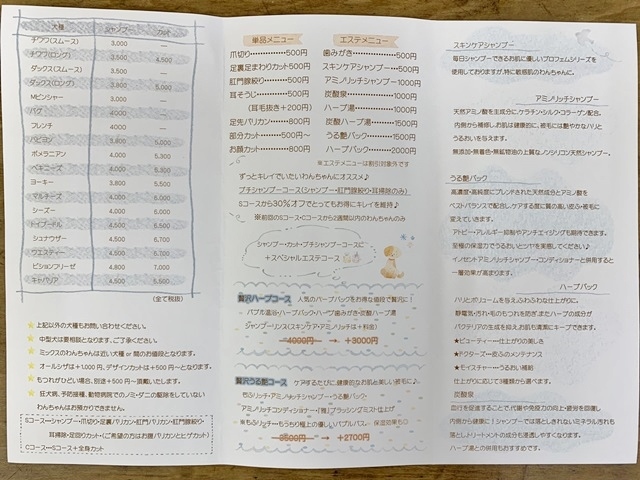 犬種 シャンプー カット
チワワ(スムース) 3,000 —
チワワ(ロング) 3,500 4,500
ダックス(スムース) 3,500 —
ダックス(ロング) 3,800 5,000
Mピンシャー 3,000 —
パグ 4,000 —
フレンチ 4000 —
パピヨン 3,800 5,000
ポメラニアン 4,000 5,300
ペキニーズ 3,800 5,500
ヨーキー 3,800 5,500
マルチーズ 4,000 5,500
シーズー 4,000 5,500
トイプードル 4,500 6,500
シュナウザー 4,500 6,700
ウエスティー 4,500 6,700
ビションフリーゼ 4,800 7,000
キャバリア 4,500 5,500
(全て税抜)
上記以外の犬種もお問い合わせください。
中型犬は要相談となります、ご了承ください。
ミックスのわんちゃんは近い犬種or間のお値段となります。
オールシザは+1.000円、デザインカットは+500円〜となります。
もつれがひどい場合、別途+500円〜頂戴いたします。
狂犬病、予防接種、動物病院でのノミ・ダニの駆除をしていない
わんちゃんはお預かりできません。
Sコース…シャンプー・爪切り・足裏バリカン・肛門バリカン・肛門腺絞り・
耳掃除・足回りカット・(ご希望の方はお腹バリカンとヒゲカット)
Cコース…Sコース+全身カット
単品メニュー
爪切り………500円
足裏足まわりカット500円
肛門腺絞り……500円
耳そうじ………500円
(耳毛抜き+200円)
足先バリカン……800円
部分カット……500円〜
お顔カット………800円
エステメニュー
歯みがき………500円
スキンケアシャンプー…500円
アミノリッチシャンプー1000円
炭酸泉………1000円
ハーブ湯………1000円
炭酸ハーブ湯……1500円
うる艶パック……1500円
ハーブパック……2000円
※エステメニューは割引対象外です
ずっとキレイでいたいわんちゃんにオススメ♪
プチシャンプーコース(シャンプー・肛門腺絞り・耳掃除のみ)
Sコースから30%オフでとってもお得にキレイを維持♪
※前回のSコース・Cコースから2週間以内のわんちゃんのみ
シャンプー・カット・プチシャンプーコースに
+スペシャルエステコース
贅沢ハーブコース 人気のハーブパックをお得な値段で贅沢に!
バブル温浴・ハーブパック・ハーブ歯みがき・炭酸ハーブ湯
シャンプーリンス(スキンケア・アミノリッチは+料金)
4000円→+3000円
贅沢うる艶コース ケアするたびに、健康的なお肌と美しい被毛に♪
アミノリッチコンディショナー・(微)ブラッシングミスト仕上げ
3500円→+2700円
スキンケアシャンプー
毎日シャンプーできるお肌に優しいプロフェムシリーズを
使用しておりますが、特に敏感肌のわんちゃんに。
アミノリッチシャンプー
天然アミノ酸を主成分に、ケラチン・シルク・コラーゲン配合。
内側から補修しお肌は健康的に、被毛には艶やかなハリと
うるおいを与えます。
無添加・無着色・無鉱物油の上質なノンシリコン天然シャンプー。
うる艶パック
高濃度・高純度にブレンドされた天然成分とアミノ酸を
ベストバランスで配合し、ケアする度に質の高い皮ふ・被毛に
変えていきます。
アトピー・アレルギー抑制やアンチエイジングも期待できます。
至極の保湿力でうるおいとツヤを実感してください♪
イノセントアミノリッチシャンプー・コンディショナーと併用すると
一層効果が高まります。
ハーブパック
ハリとボリュームを与え、ふわふわな仕上がりに。
静電気・汚れ・毛のもつれを防ぎ、またハーブの成分が
バクテリアの生成を抑えお肌も清潔にキープできます。
★ビューティー…仕上がりの美しさ
★ドクターズ…皮ふのメンテナンス
★モイスチャー…うるおい補給
仕上がりに応じて3種類から選べます。
炭酸泉
血行を促進することで、代謝や免疫力の向上・疲労を回復し
内側から健康に!シャンプーでは落としきれないミネラル汚れも
落としトリートメントの成分も浸透しやすくなります。
ハーブ湯との併用もおすすめです。